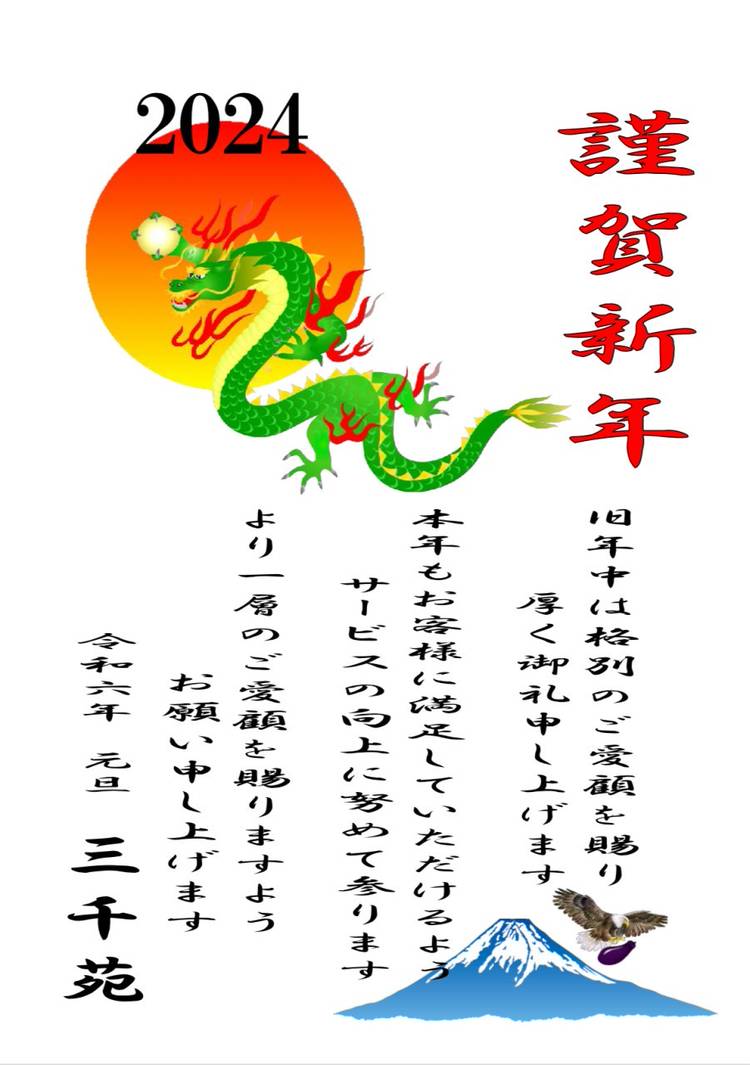 2024
謹賀新年
旧年中は格別のご愛顧を賜り
厚く御礼申し上げます
本年もお客様に満足していただけるよう
サービスの向上に努めて参ります
より一層のご愛顧を賜りますよう
お願い申し上げます
令和六年 元旦 三千苑